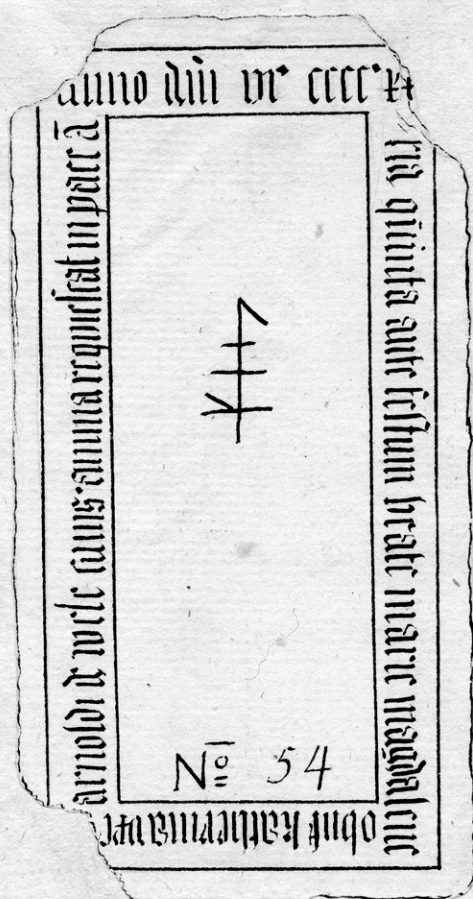 anno dni m° cccc° x
ria quinta ante festum beate marie magdalene
obiit katherina uxe
arnoldi de wese cuius anima requiescat in pace a
No 54